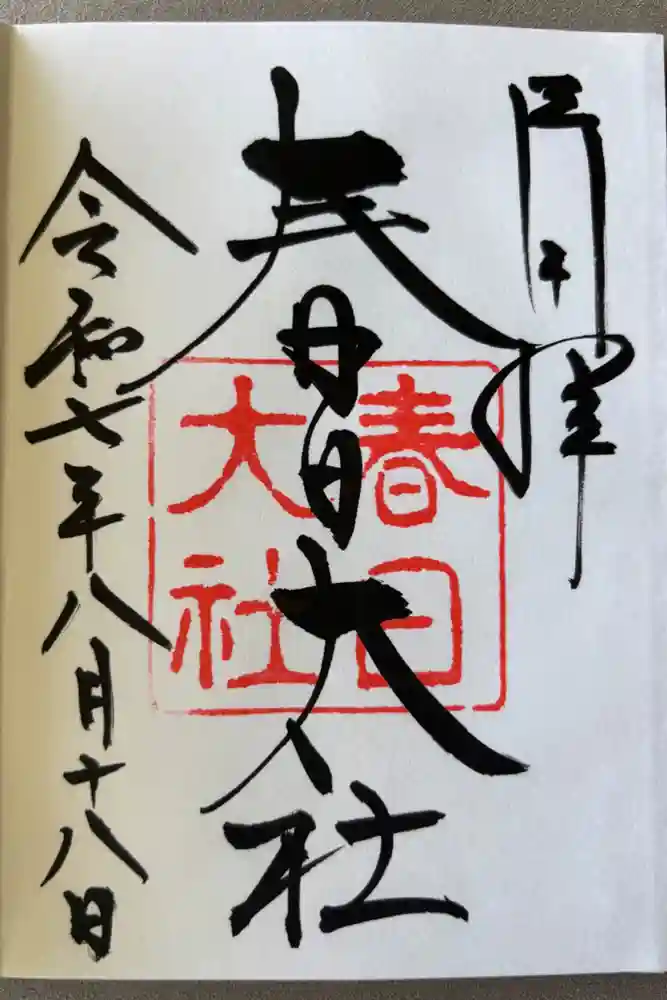 春日大社
春日
大社
令和七年八月十八日